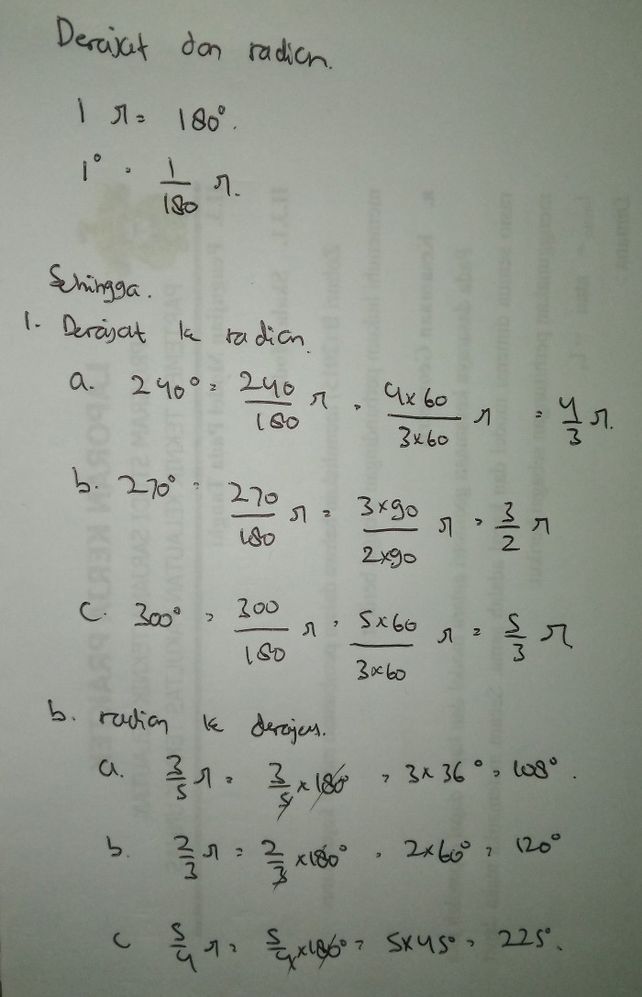 Derajat dan radian.
1 π = 180°.
1° = 1/180 π.
Sehingga.
1. Derajat ke radian.
a. 240° = 240/180 π = 4x60/3x60 π = 4/3 π.
b. 270° = 270/180 π = 3x90/2x90 π = 3/2 π
c. 300° = 300/180 π = 5x60/3x60 π = 5/3 π
b. radian ke derajat.
a. 3/5 π = 3/5 x 180° = 3 x 36° = 108°.
b. 2/3 π = 2/3 x 180° = 2x60° = 120°
c 5/4 π = 5/4 x 180° = 5x45° = 225°.